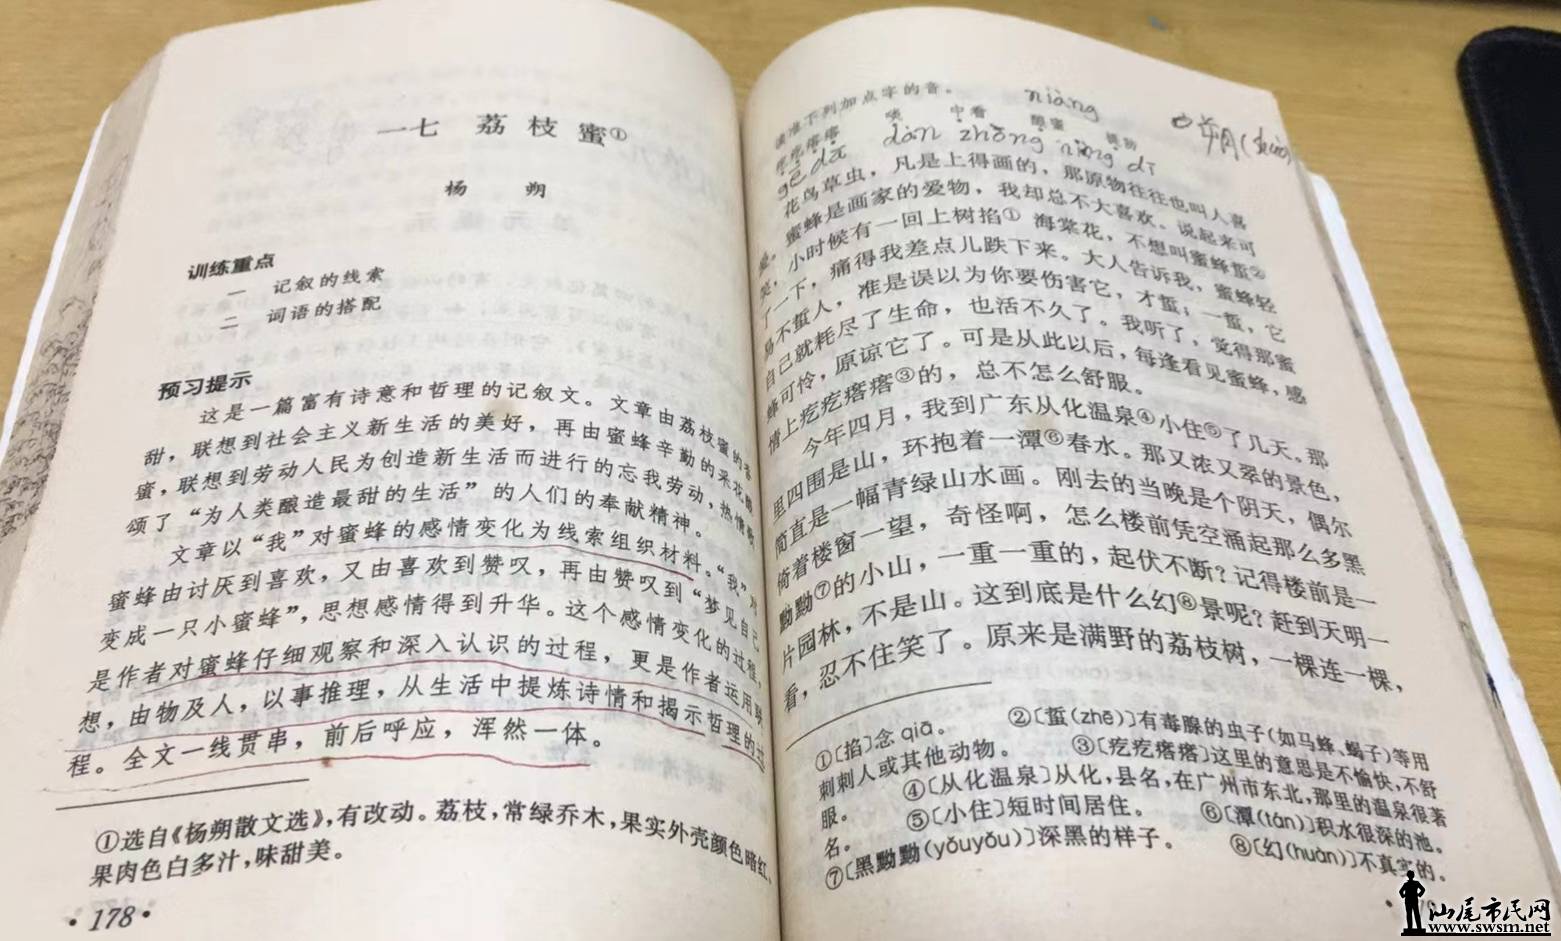 一七 荔枝蜜①
杨 朔
训练重点
一 记叙的线索
二 词语的搭配
预习提示
这是一篇富有诗意和哲理的记叙文。文章由荔枝蜜的香
甜，联想到社会主义新生活的美好，再由蜜蜂辛勤的采花酿
蜜，联想到劳动人民为创造新生活而进行的忘我劳动，热情歌
颂了“为人类酿造最甜的生活”的人们的奉献精神。
文章以“我”对蜜蜂的感情变化为线索组织材料。“我”对
蜜蜂由讨厌到喜欢，又由喜欢到赞叹，再由赞叹到“梦见自己
变成一只小蜜蜂”，思想感情得到升华。这个感情变化的过程，
是作者对蜜蜂仔细观察和深入认识的过程，更是作者运用联
想，由物及人，以事推理，从生活中提炼诗情和揭示哲理的过
程。全文一线贯串，前后呼应，浑然一体。
①选自《杨朔散文选》，有改动。荔枝，常绿乔木，果实外壳颜色暗红，
果肉色白多汁，味甜美。
·178·
读准下列加点字的音。
niàng
疙疙瘩瘩 啖 中看 酿蜜 提防
gē dā dàn zhōng niàng dī
朔(shuò)
花鸟草虫，凡是上得画的，那原物往往也叫人喜
爱。蜜蜂是画家的爱物，我却总不大喜欢。说起来可
笑，小时候有一回上树掐①海棠花，不想叫蜜蜂蜇②
了一下，痛得我差点儿跌下来。大人告诉我，蜜蜂轻
易不蜇人，准是误以为你要伤害它，才蜇；一蜇，它
自己就耗尽了生命，也活不久了。我听了，觉得那蜜
蜂可怜，原谅它了。可是从此以后，每逢看见蜜蜂，感
情上疙疙瘩瘩③的，总不怎么舒服。
今年四月，我到广东从化温泉④小住⑤了几天。那
里四围是山，环抱着一潭⑥春水。那又浓又翠的景色，
简直是一幅青绿山水画。刚去的当晚是个阴天，偶尔
倚着楼窗一望，奇怪啊，怎么楼前凭空涌起那么多黑
黝黝⑦的小山，一重一重的，起伏不断？记得楼前是一
片园林，不是山。这到底是什么幻⑧景呢？赶到天明一
看，忍不住笑了。原来是满野的荔枝树，一棵连一棵，
①〔掐〕念 qiā。 ②〔蜇(zhē)〕有毒腺的虫子(如马蜂、蝎子)等用
刺刺人或其他动物。 ③〔疙疙瘩瘩〕这里的意思是不愉快，不舒
服。 ④〔从化温泉〕从化，县名，在广州市东北，那里的温泉很著
名。 ⑤〔小住〕短时间居住。 ⑥〔潭(tán)〕积水很深的池。
⑦〔黑黝黝(yǒuyǒu)〕深黑的样子。 ⑧〔幻(huàn)〕不真实的。
汕尾市民网
www.swsm.net